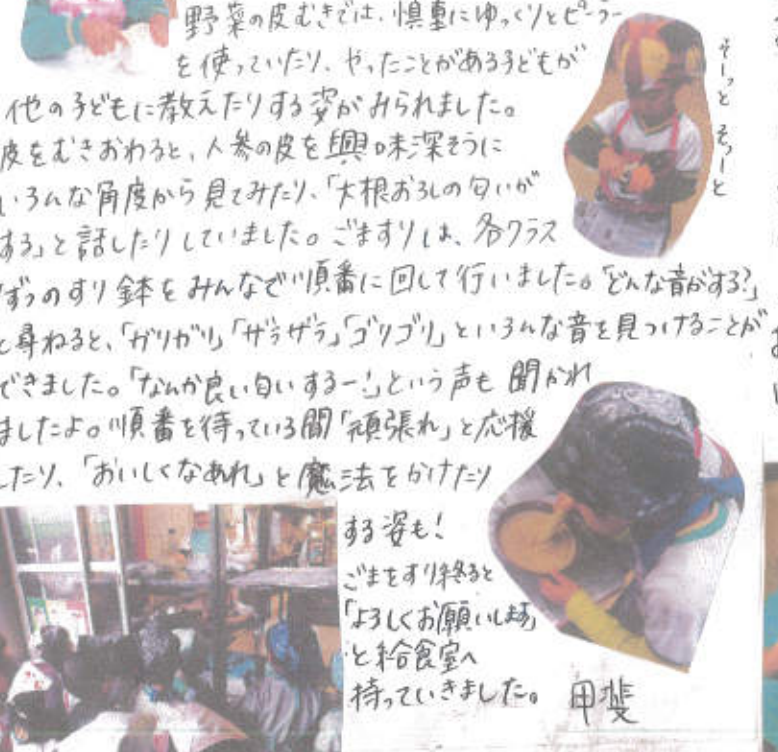 野菜の皮むきでは、慎重にゆっくりとピーラー
を使っていたり、やったことがある子どもが
他の子どもに教えたりする姿がみられました。
皮をむきおわると、人参の皮を興味深そうに
いろんな角度から見てみたり、「大根おろしの匂いが
する」と話したりしていました。ごますりは、各クラス
ずつのすり鉢をみんなで順番に回して行いました。「どんな音がする?」
と尋ねると、「ガリガリ」「ザラザラ」「ゴリゴリ」といろんな音を見つけることが
できました。「なんか良い匂いするー!」という声も聞かれ
ましたよ。順番を待っている間「頑張れ」と応援
したり、「おいしくなあれ」と魔法をかけたり
する姿も!
ごまをすり終ると
「よろしくお願いします」
と給食室へ
持っていきました。 甲斐
そーっと そーっと